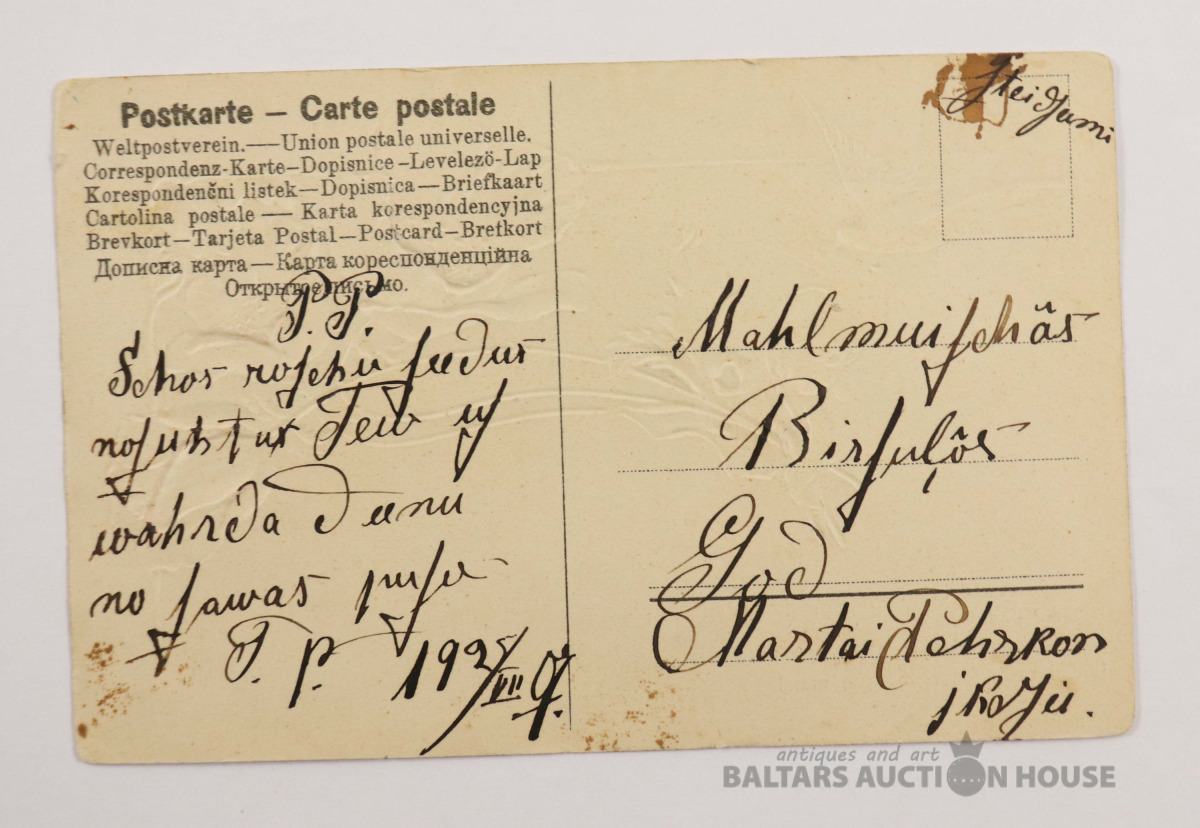 Postkarte – Carte postale
Weltpostverein.—Union postale universelle.
Correspondenz-Karte–Dopisnice–Levelezö-Lap
Korespondenčni listek–Dopisnica–Briefkaart
Cartolina postale — Karta korespondencyjna
Brevkort–Tarjeta Postal–Postcard–Brefkort
Дописна карта–Карта кореспонденцiйна
Открытое письмо.
P.P.
Schos roschu seedus
nosuhtu Tew us
wahrda deenu
no sawas puses
T. p.
Mahlmuischâs
Birsuļôs
God
Martai Pehrkon
antiques and art
BALTARS AUCTION HOUSE